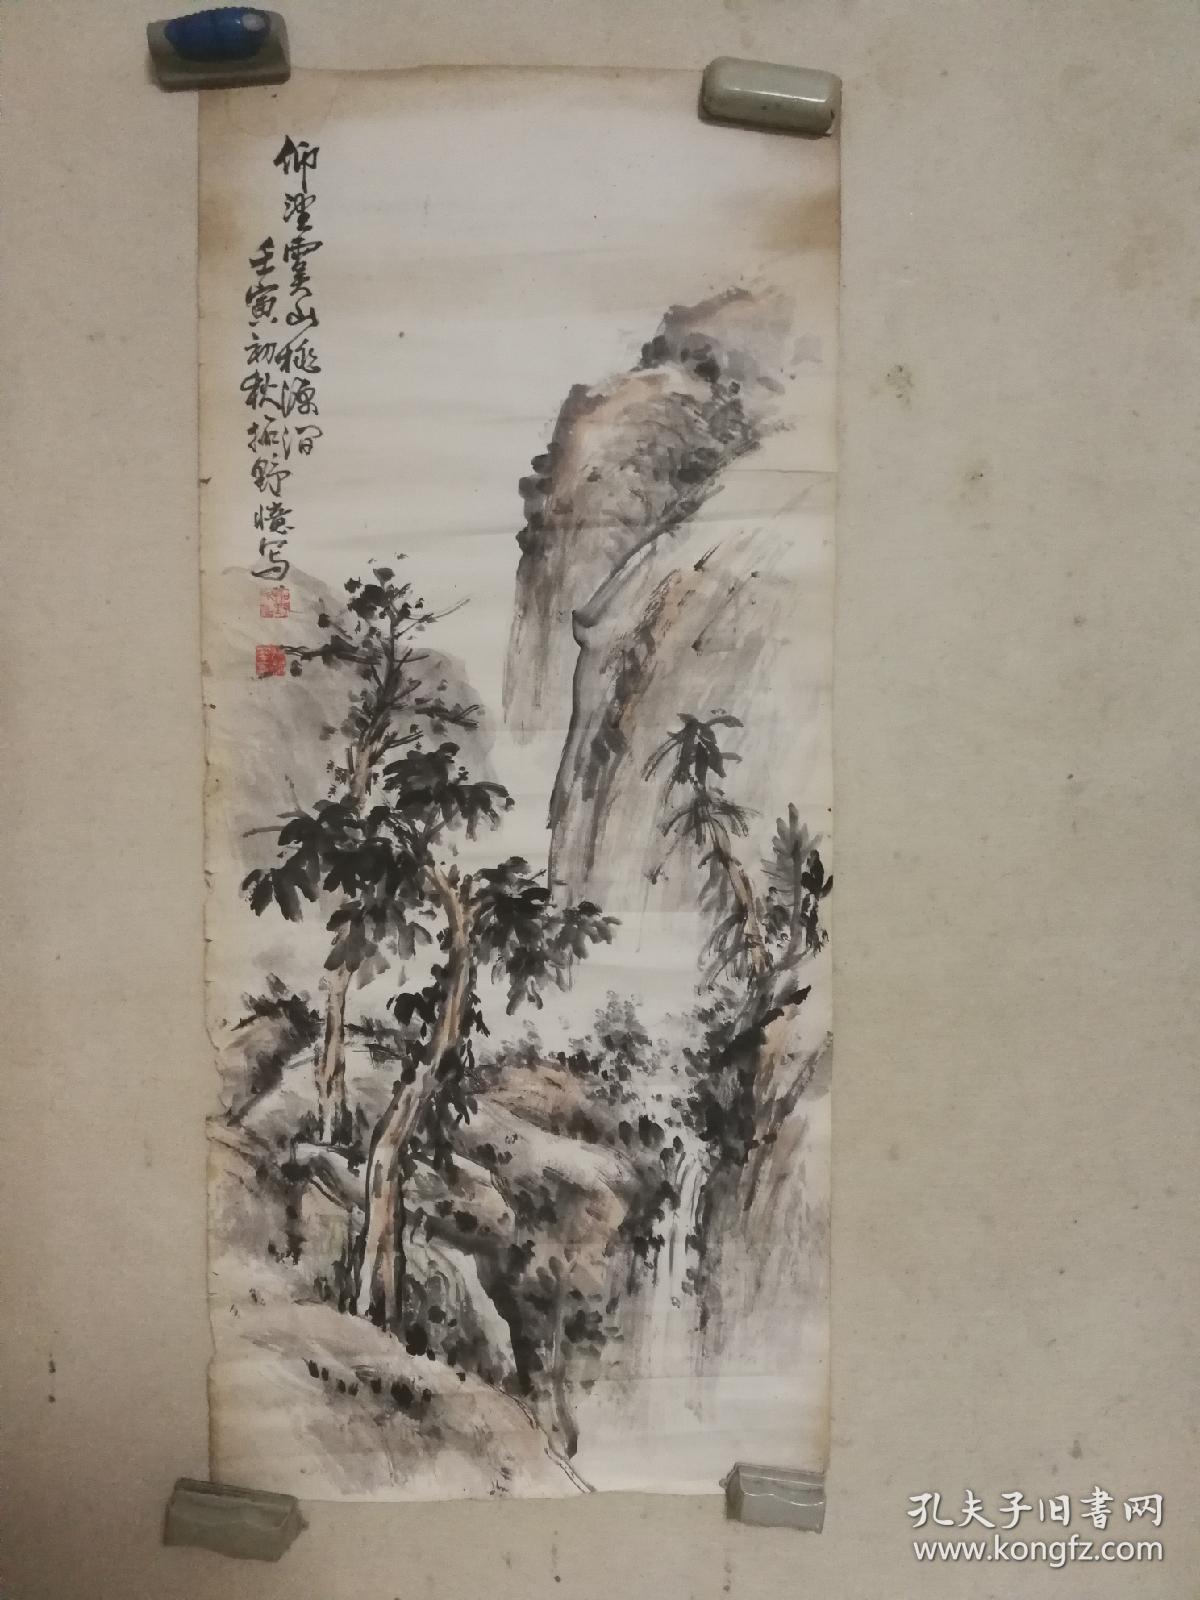 仰望虞山桃源涧
壬寅初秋拓野憶写
孔夫子旧書网
www.kongfz.com